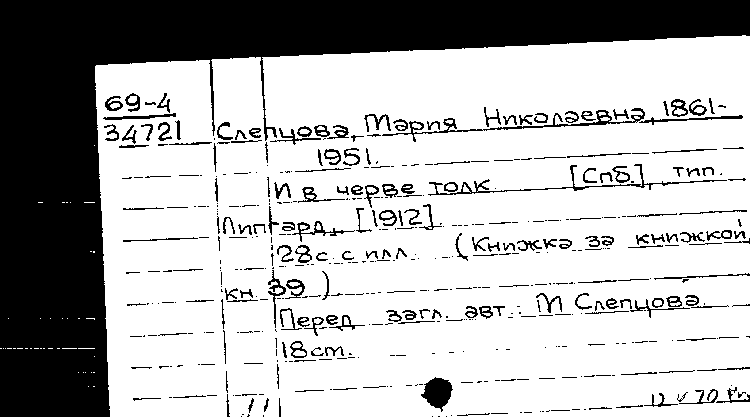 69-4
34721 Слепцова, Мария Николаевна, 1861-
1951.
И в черве толк [Спб.], тип.
Липгард, [1912]
28с с илл. (Книжка за книжкой,
кн 39)
Перед загл. авт.: М Слепцова.
18cm.